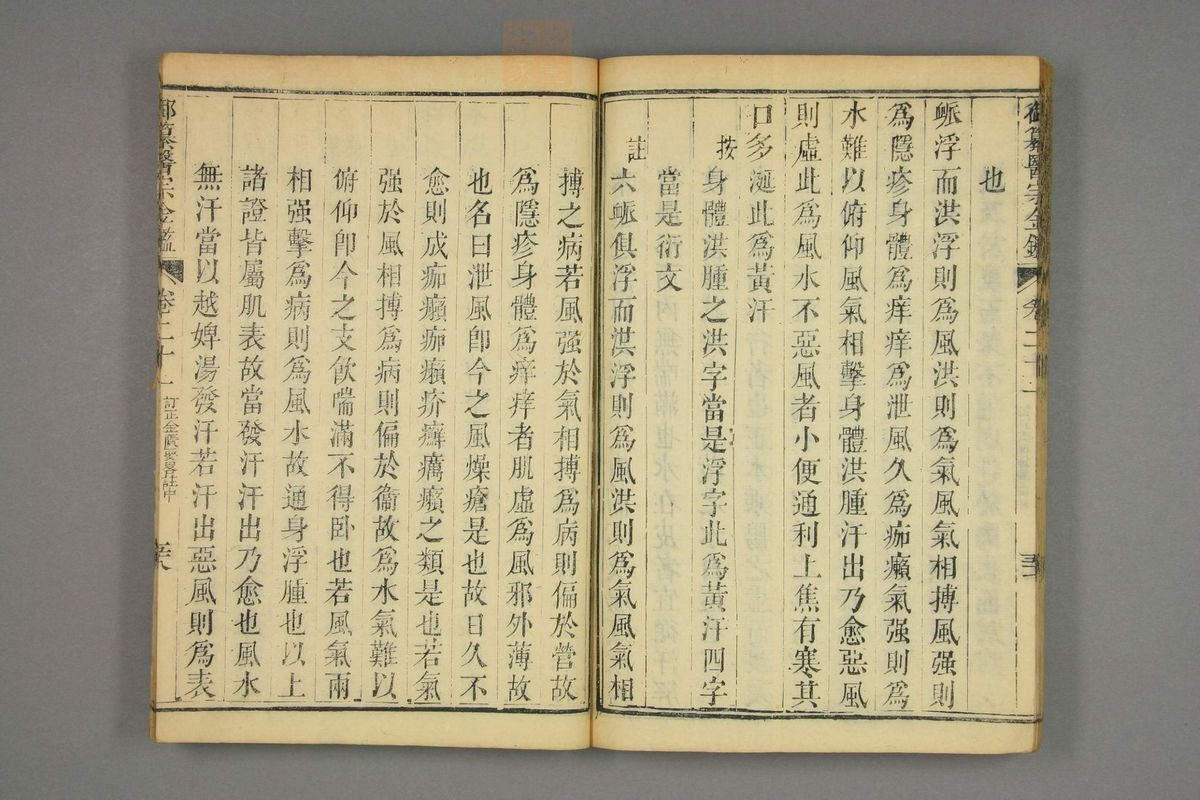 也
脈浮而洪浮則爲風洪則爲氣風氣相搏風强則
爲隱疹身體爲痒痒爲泄風久爲痂癩氣强則爲
水難以俯仰風氣相擊身體洪腫汗出乃愈惡風
則虛此爲風水不惡風者小便通利上焦有寒其
口多涎此爲黃汗
按身體洪腫之洪字當是浮字此爲黃汗四字
當是衍文
註六脈俱浮而洪浮則爲風洪則爲氣風氣相
搏之病若風强於氣相搏爲病則偏於營故
爲隱疹身體爲痒痒者肌虛爲風邪外薄故
也名曰泄風卽今之風燥瘡是也故日久不
愈則成痂癩痂癩疥癬癘癩之類是也若氣
强於風相搏爲病則偏於衞故爲水氣難以
俯仰卽今之支飮喘滿不得卧也若風氣兩
相强擊爲病則爲風水故通身浮腫也以上
諸證皆屬肌表故當發汗汗出乃愈也風水
無汗當以越婢湯發汗若汗出惡風則爲表
御纂醫宗金鑑 卷二十一 訂正金匱要畧註中